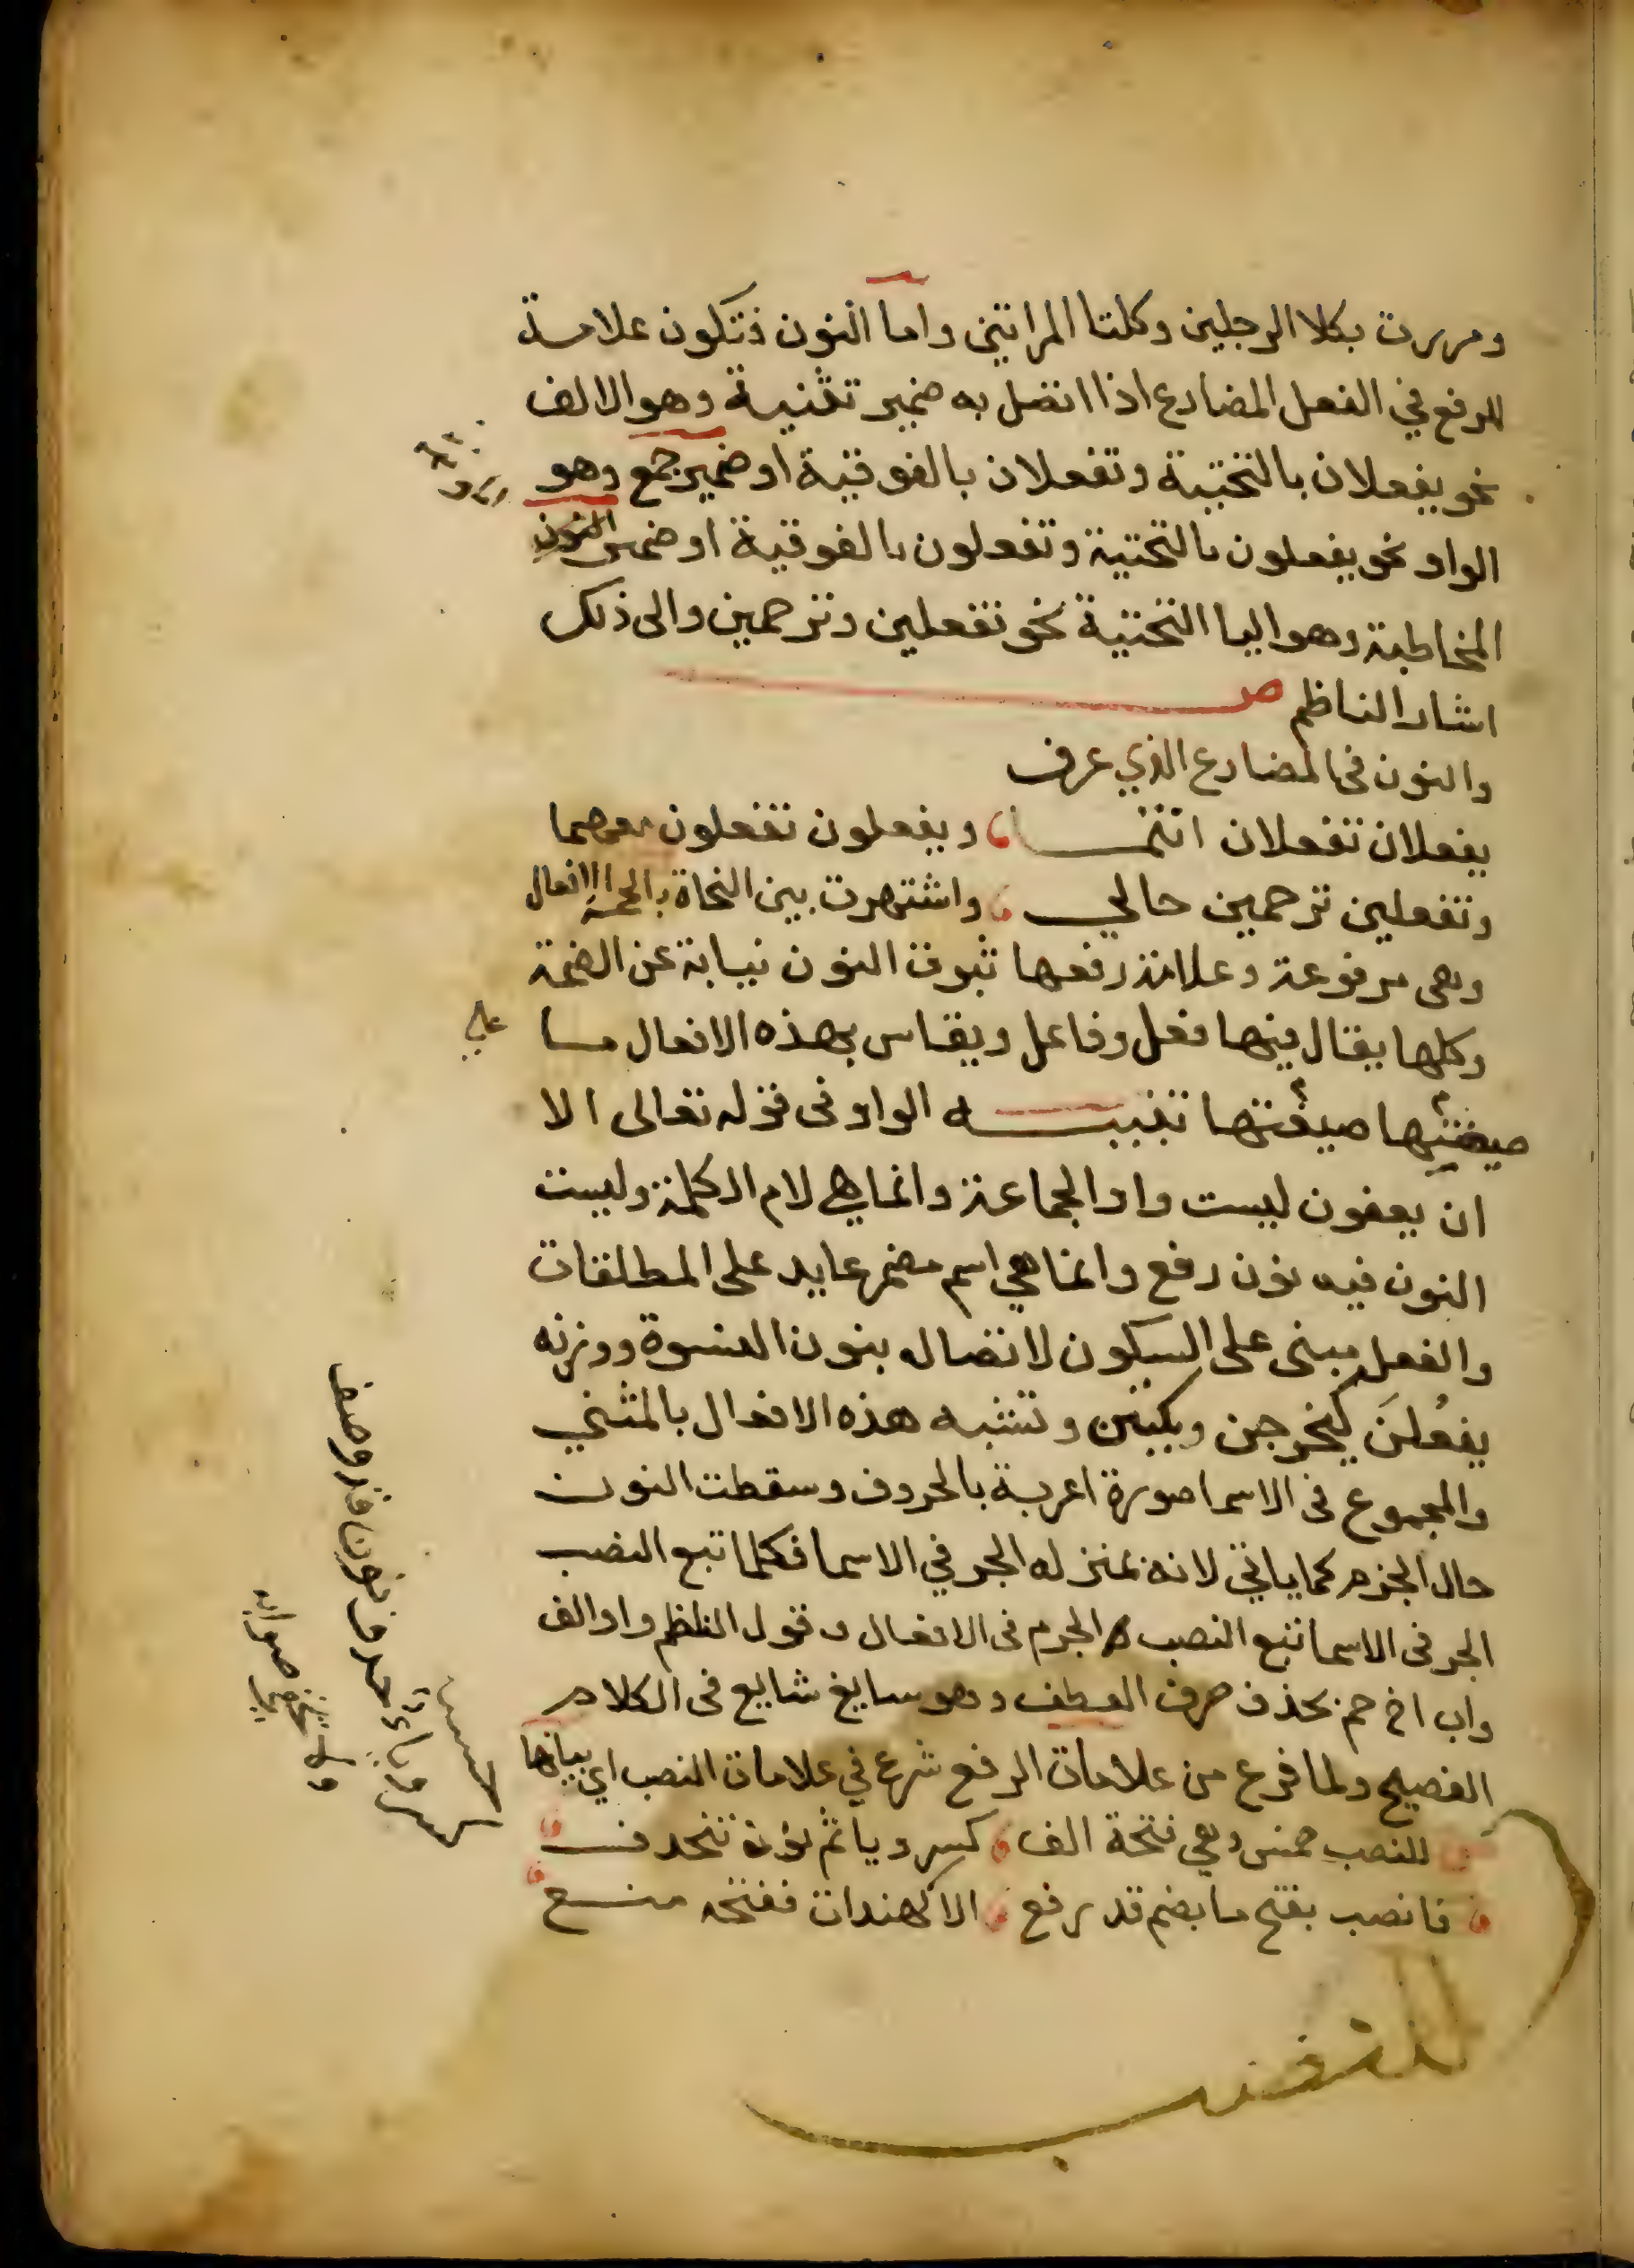 ومررت بكلا الرجلين وكلتا المراتين واما النون فتكون علامة
للرفع في الفعل المضارع اذا اتصل به ضمير تثنية وهو الالف
نحو يفعلان بالتحتية وتفعلان بالفوقية او ضمير جمع وهو
الواو نحو يفعلون بالتحتية وتفعلون بالفوقية او ضمير
المخاطبة وهو اليا التحتية نحو تفعلين وترحمين والى ذلك
اشار الناظم ص
والنون في المضارع الذي عرف
يفعلان تفعلان انتما ويفعلون تفعلون معهما
وتفعلين ترحمين حالي واشتهرت بين النحاة بالخمسة الافعال
وهي مرفوعة وعلامة رفعها ثبوت النون نيابة عن الضمة
وكلها يقال فيها فعل وفاعل ويقاس بهذه الافعال ما
على
صيغتها صيغتها تنبيه الواو في قوله تعالى الا
ان يعفون ليست واو الجماعة وانما هي لام الكلمة وليست
النون فيه نون رفع وانما هي اسم مضمر عايد على المطلقات
والفعل مبني على السكون لاتصاله بنون النسوة ووزنه
يفعلن كيخرجن ويكتبن وتشبه هذه الافعال بالمثني
والمجموع في الاسما صورة اعربة بالحروف وسقطت النون
حال الجزم كما ياتي لانه بمنزله الجر في الاسما فكلما تبع النصب
الجر في الاسما تبع النصب الجزم في الافعال وقول الناظم واو الف
واب اخ حم بحذف حرف العطف وهو سايغ شايع في الكلام
الفصيح ولما فرع من علامات الرفع شرع في علامات النصب اي بيانها
للنصب خمس وهي فتحة الف كسر ويا ثم نون تنحذف
فانصب بفتح ما بضم قد رفع الا كهندات ففتحه منع
كسر وياء حذف نون قد وصف